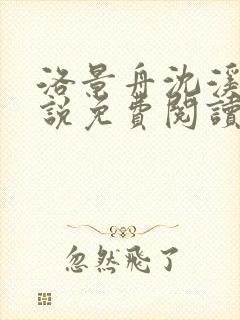 洛景舟沈溪
說免費閱讀
忽然飛了